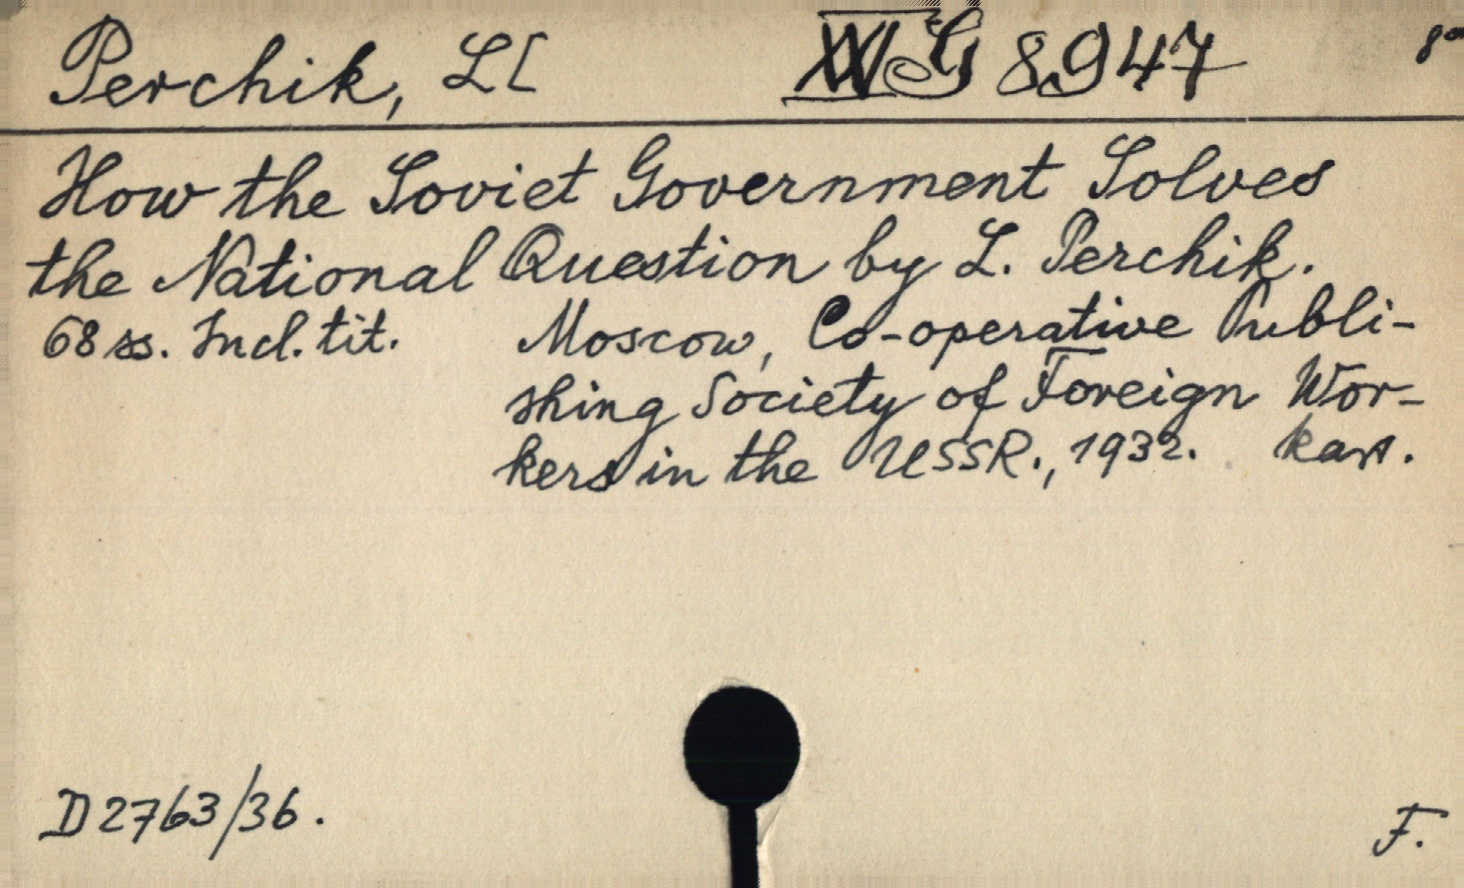 Perchik, L[ G 8947 8°
How the Soviet Government Solves
the National Question by L. Perchik.
68 ss. Incl. tit. Moscow, Co-operative Publi-
shing Society of Foreign Wor-
kers in the USSR., 1932. kart.
D 2763/36. F.